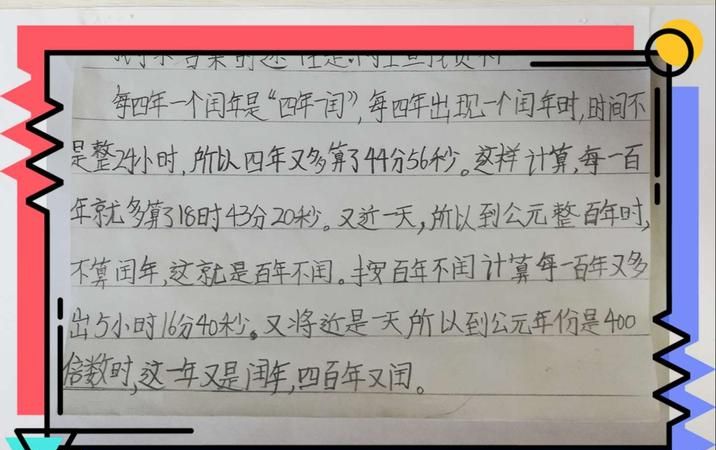 每四年一个闰年是“四年一闰”,每四年出现一个闰年时,时间不
是整24小时,所以四年又多算了44分56秒。这样计算,每一百
年就多算了18时43分20秒。又近一天,所以到公元整百年时,
不算闰年,这就是百年不闰。按百年不闰计算每一百年又多
出5小时16分40秒。又将近是一天所以到公元年份是400
倍数时,这一年又是闰年,四百年又闰。